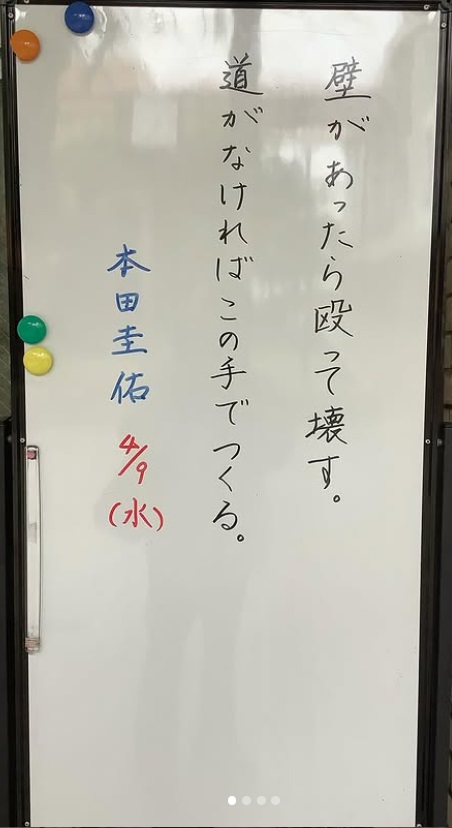 壁があったら殴って壊す。
道がなければこの手でつくる。
本田圭佑 4/9(水)